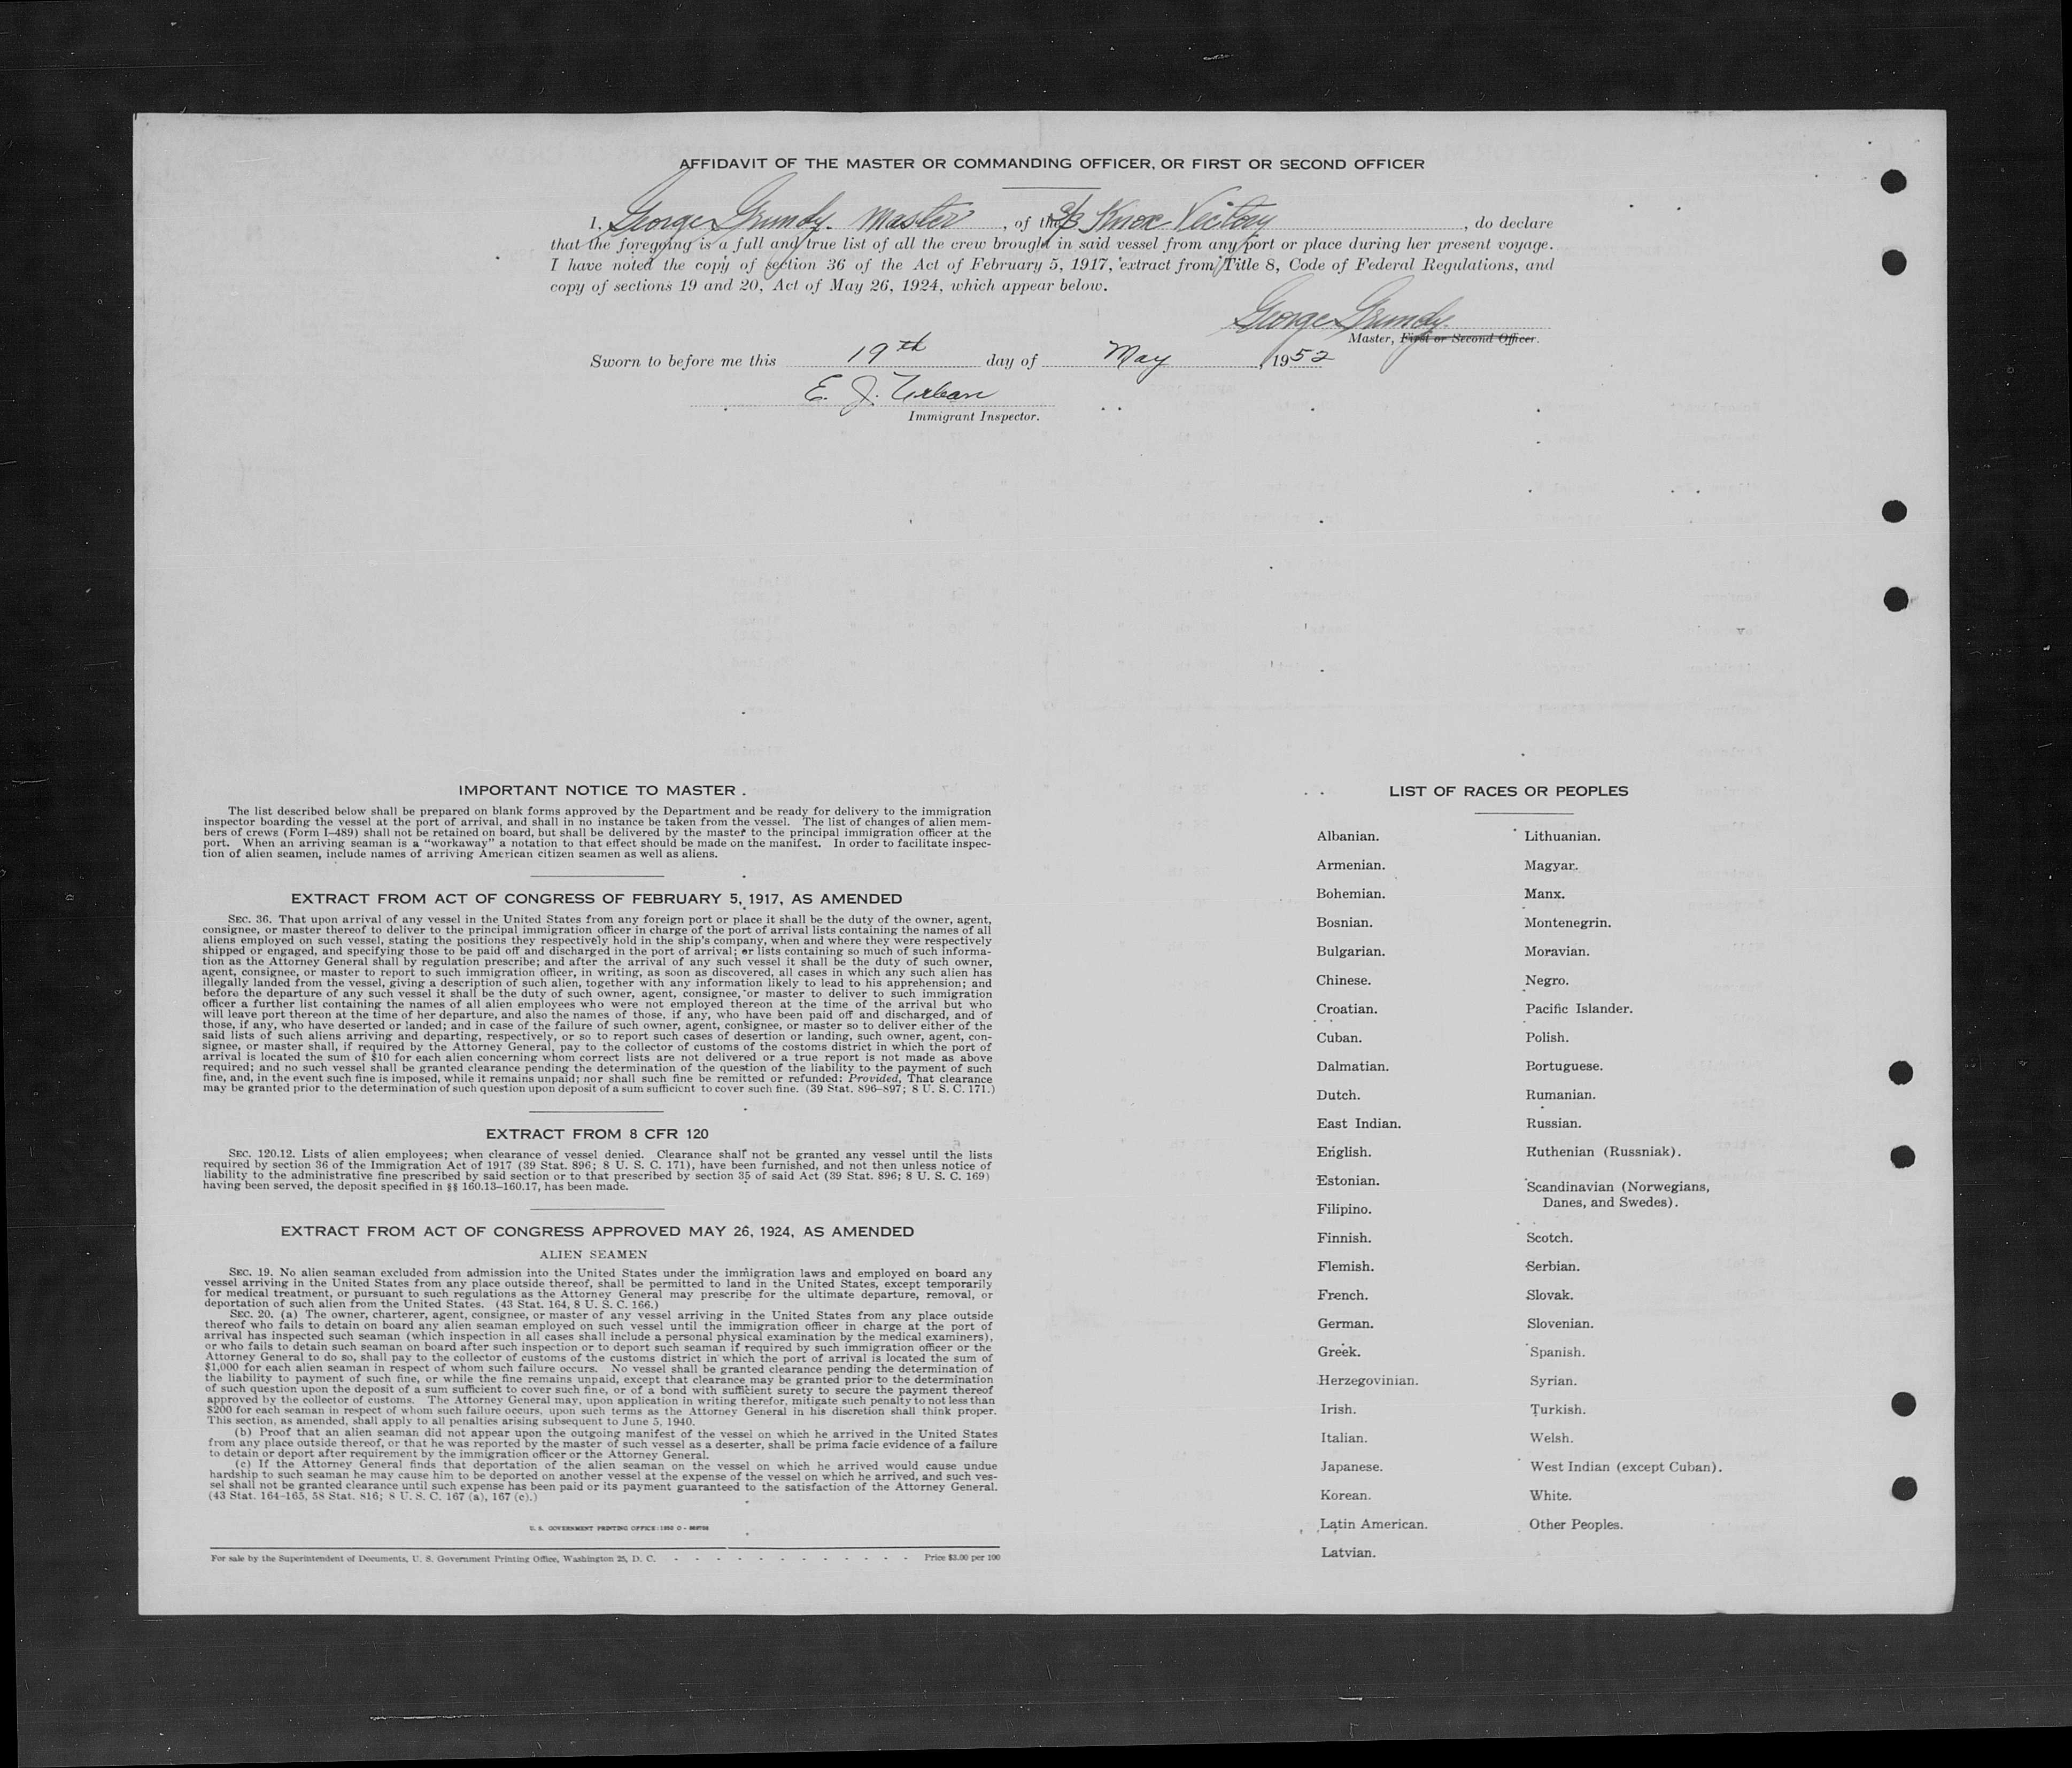 AFFIDAVIT OF THE MASTER OR COMMANDING OFFICER, OR FIRST OR SECOND OFFICER
I, George Grundy. Master, of the S/S Knox Victory, do declare
that the foregoing is a full and true list of all the crew brought in said vessel from any port or place during her present voyage.
I have noted the copy of section 36 of the Act of February 5, 1917, extract from Title 8, Code of Federal Regulations, and
copy of sections 19 and 20, Act of May 26, 1924, which appear below.
George Grundy.
Master, First or Second Officer.
Sworn to before me this 19th day of May, 1952
E. J. Urban
Immigrant Inspector.
IMPORTANT NOTICE TO MASTER
The list described below shall be prepared on blank forms approved by the Department and be ready for delivery to the immigration
inspector boarding the vessel at the port of arrival, and shall in no instance be taken from the vessel. The list of changes of alien mem-
bers of crews (Form I-489) shall not be retained on board, but shall be delivered by the master to the principal immigration officer at the
port. When an arriving seaman is a "workaway" a notation to that effect should be made on the manifest. In order to facilitate inspec-
tion of alien seamen, include names of arriving American citizen seamen as well as aliens.
EXTRACT FROM ACT OF CONGRESS OF FEBRUARY 5, 1917, AS AMENDED
SEC. 36. That upon arrival of any vessel in the United States from any foreign port or place it shall be the duty of the owner, agent,
consignee, or master thereof to deliver to the principal immigration officer in charge of the port of arrival lists containing the names of all
aliens employed on such vessel, stating the positions they respectively hold in the ship's company, when and where they were respectively
shipped or engaged, and specifying those to be paid off and discharged in the port of arrival; or lists containing so much of such informa-
tion as the Attorney General shall by regulation prescribe; and after the arrival of any such vessel it shall be the duty of such owner,
agent, consignee, or master to report to such immigration officer, in writing, as soon as discovered, all cases in which any such alien has
illegally landed from the vessel, giving a description of such alien, together with any information likely to lead to his apprehension; and
before the departure of any such vessel it shall be the duty of such owner, agent, consignee, or master to deliver to such immigration
officer a further list containing the names of all alien employees who were not employed thereon at the time of the arrival but who
will leave port thereon at the time of her departure, and also the names of those, if any, who have been paid off and discharged, and of
those, if any, who have deserted or landed; and in case of the failure of such owner, agent, consignee, or master so to deliver either of the
said lists of such aliens arriving and departing, respectively, or so to report such cases of desertion or landing, such owner, agent, con-
signee, or master shall, if required by the Attorney General, pay to the collector of customs of the costoms district in which the port of
arrival is located the sum of $10 for each alien concerning whom correct lists are not delivered or a true report is not made as above
required; and no such vessel shall be granted clearance pending the determination of the question of the liability to the payment of such
fine, and, in the event such fine is imposed, while it remains unpaid; nor shall such fine be remitted or refunded: Provided, That clearance
may be granted prior to the determination of such question upon deposit of a sum sufficient to cover such fine. (39 Stat. 896-897; 8 U. S. C. 171.)
EXTRACT FROM 8 CFR 120
SEC. 120.12. Lists of alien employees; when clearance of vessel denied. Clearance shall not be granted any vessel until the lists
required by section 36 of the Immigration Act of 1917 (39 Stat. 896; 8 U. S. C. 171), have been furnished, and not then unless notice of
liability to the administrative fine prescribed by said section or to that prescribed by section 35 of said Act (39 Stat. 896; 8 U. S. C. 169)
having been served, the deposit specified in §§ 160.13-160.17, has been made.
EXTRACT FROM ACT OF CONGRESS APPROVED MAY 26, 1924, AS AMENDED
ALIEN SEAMEN
SEC. 19. No alien seaman excluded from admission into the United States under the immigration laws and employed on board any
vessel arriving in the United States from any place outside thereof, shall be permitted to land in the United States, except temporarily
for medical treatment, or pursuant to such regulations as the Attorney General may prescribe for the ultimate departure, removal, or
deportation of such alien from the United States. (43 Stat. 164, 8 U. S. C. 166.)
SEC. 20. (a) The owner, charterer, agent, consignee, or master of any vessel arriving in the United States from any place outside
thereof who fails to detain on board any alien seaman employed on such vessel until the immigration officer in charge at the port of
arrival has inspected such seaman (which inspection in all cases shall include a personal physical examination by the medical examiners),
or who fails to detain such seaman on board after such inspection or to deport such seaman if required by such immigration officer or the
Attorney General to do so, shall pay to the collector of customs of the customs district in which the port of arrival is located the sum of
$1,000 for each alien seaman in respect of whom such failure occurs. No vessel shall be granted clearance pending the determination of
the liability to payment of such fine, or while the fine remains unpaid, except that clearance may be granted prior to the determination
of such question upon the deposit of a sum sufficient to cover such fine, or of a bond with sufficient surety to secure the payment thereof
approved by the collector of customs. The Attorney General may, upon application in writing therefor, mitigate such penalty to not less than
$200 for each seaman in respect of whom such failure occurs, upon such terms as the Attorney General in his discretion shall think proper.
This section, as amended, shall apply to all penalties arising subsequent to June 5, 1940.
(b) Proof that an alien seaman did not appear upon the outgoing manifest of the vessel on which he arrived in the United States
from any place outside thereof, or that he was reported by the master of such vessel as a deserter, shall be prima facie evidence of a failure
to detain or deport after requirement by the immigration officer or the Attorney General.
(c) If the Attorney General finds that deportation of the alien seaman on the vessel on which he arrived would cause undue
hardship to such seaman he may cause him to be deported on another vessel at the expense of the vessel on which he arrived, and such ves-
sel shall not be granted clearance until such expense has been paid or its payment guaranteed to the satisfaction of the Attorney General.
(43 Stat. 164-165, 58 Stat. 816; 8 U. S. C. 167 (a), 167 (c).)
U. S. GOVERNMENT PRINTING OFFICE : 1952 O -
For sale by the Superintendent of Documents, U. S. Government Printing Office, Washington 25, D. C. - - - - - - - - - - - - Price $3.00 per 100
LIST OF RACES OR PEOPLES
Albanian.
Armenian.
Bohemian.
Bosnian.
Bulgarian.
Chinese.
Croatian.
Cuban.
Dalmatian.
Dutch.
East Indian.
English.
Estonian.
Filipino.
Finnish.
Flemish.
French.
German.
Greek.
Herzegovinian.
Irish.
Italian.
Japanese.
Korean.
Latin American.
Latvian.
Lithuanian.
Magyar.
Manx.
Montenegrin.
Moravian.
Negro.
Pacific Islander.
Polish.
Portuguese.
Rumanian.
Russian.
Ruthenian (Russniak).
Scandinavian (Norwegians,
Danes, and Swedes).
Scotch.
Serbian.
Slovak.
Slovenian.
Spanish.
Syrian.
Turkish.
Welsh.
West Indian (except Cuban).
White.
Other Peoples.